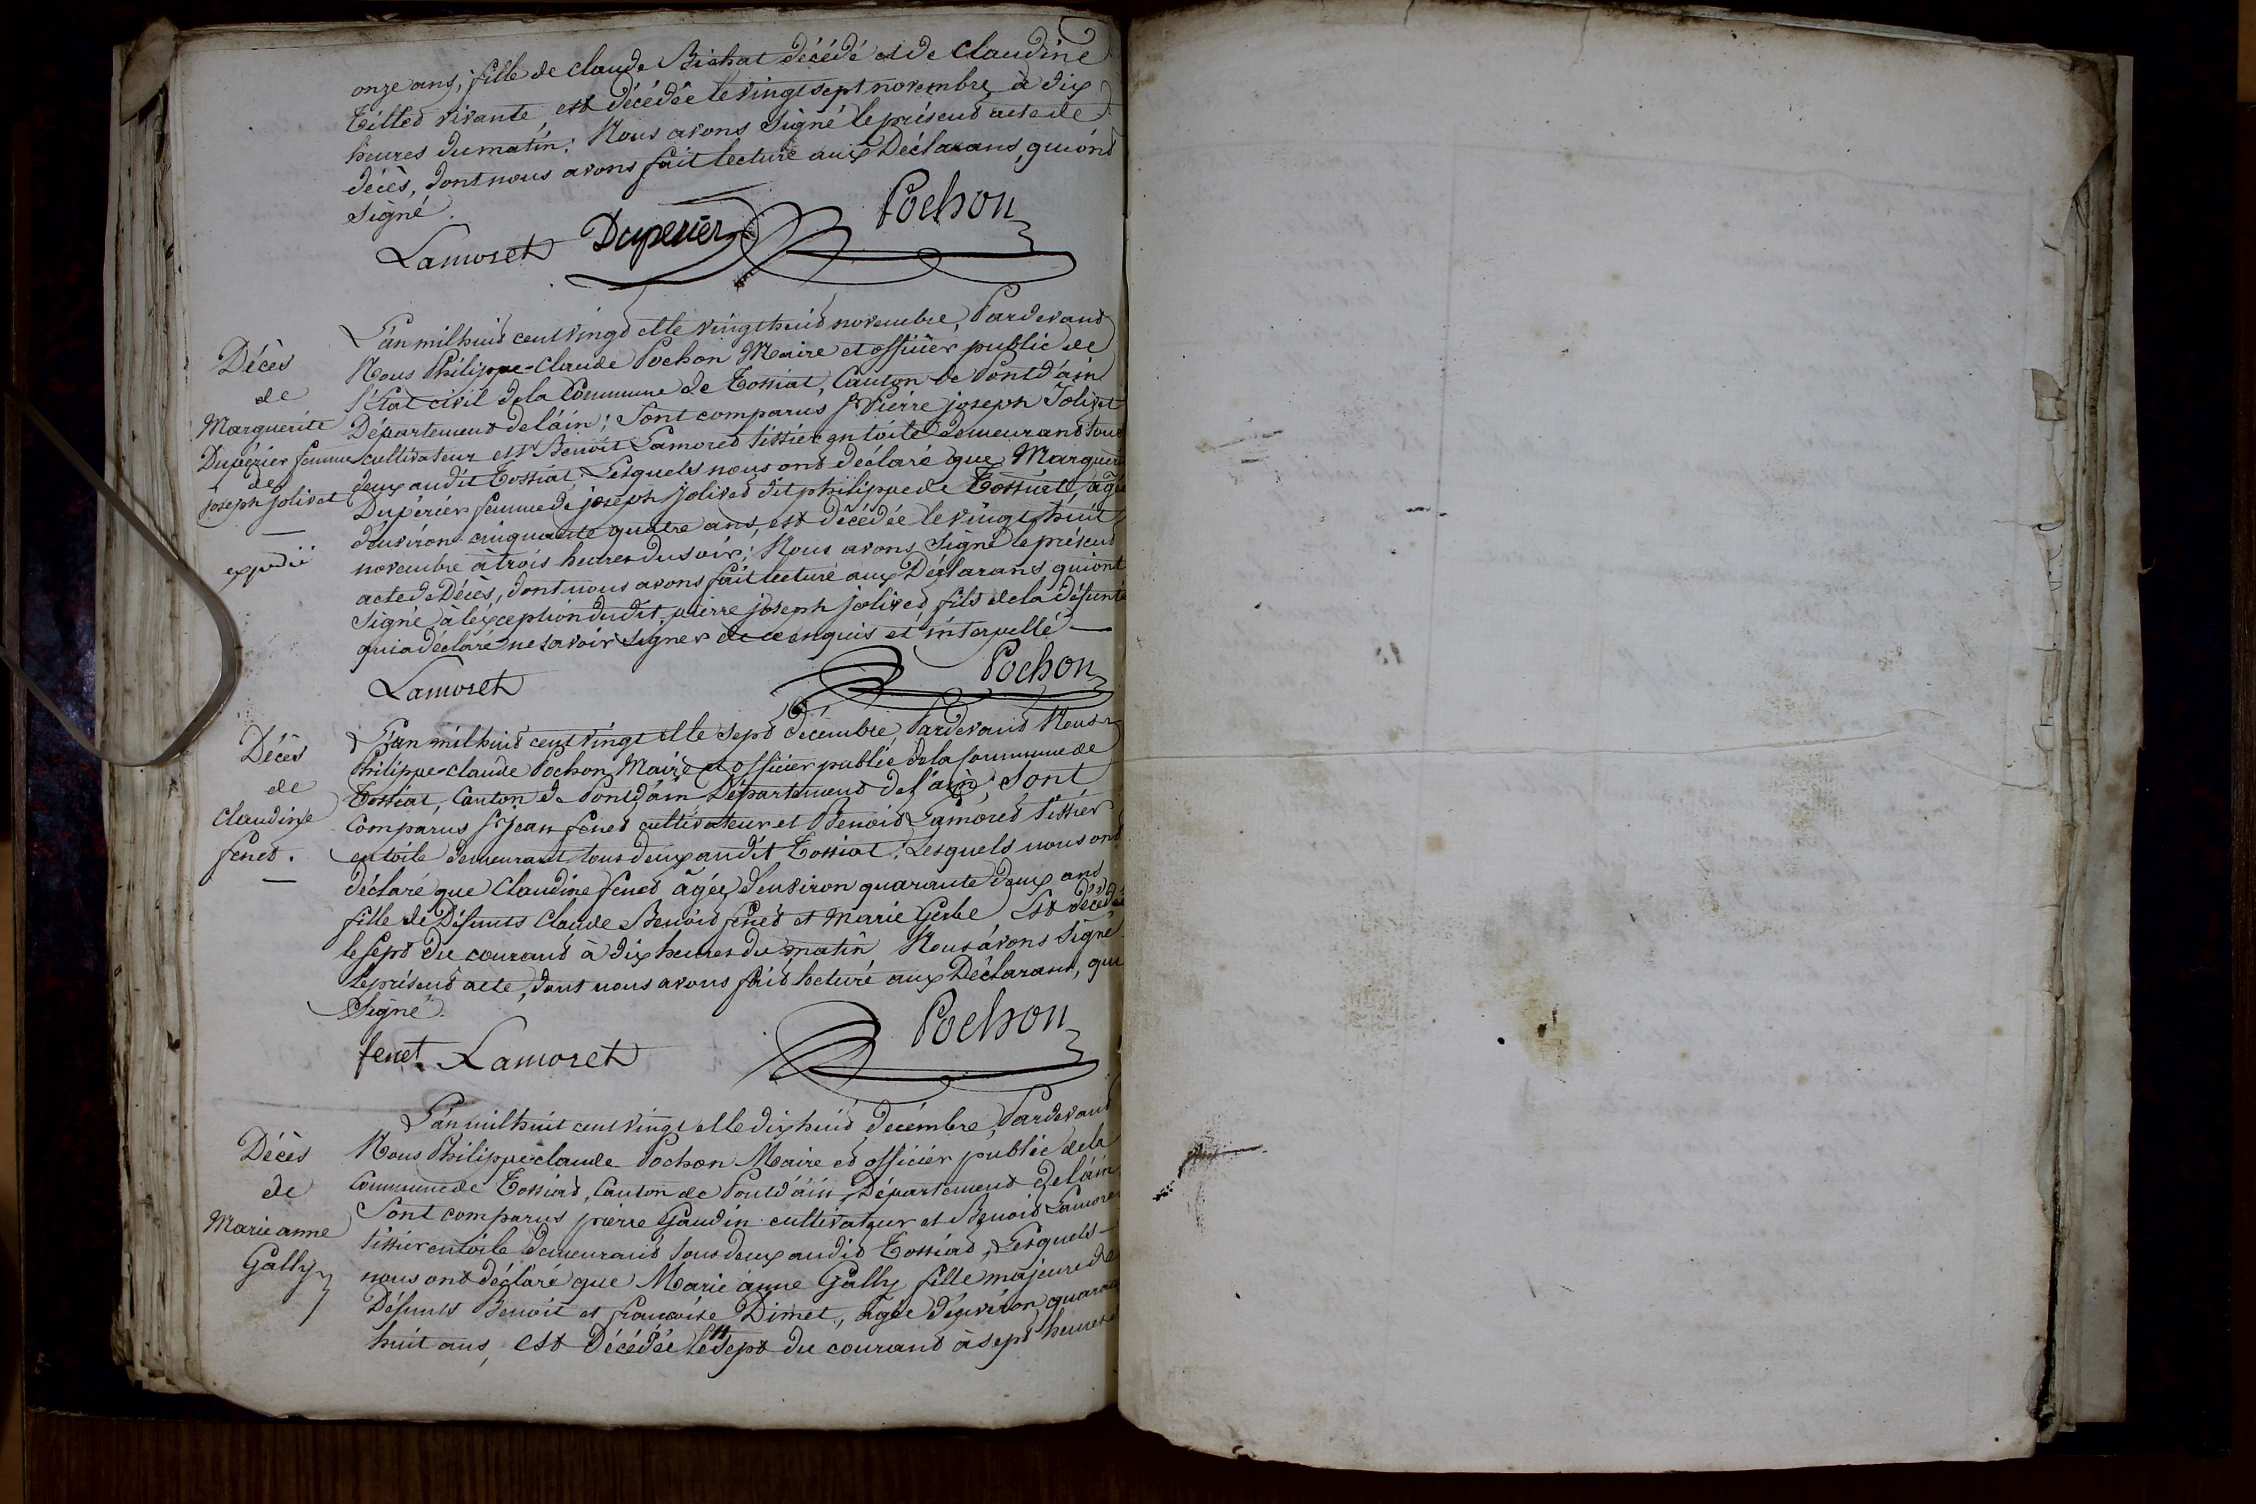 onze ans, fille de claude Bichat décédé et de claudine
Tillet vivante est décédée le vingt sept novembre à dix
heures du matin; Nous avons signé le présent acte de
décès, dont nous avons fait lecture aux Déclarans, qui ont
signé.
Lamoret Duperier Pochon
Décès
de
Marguerite
Dupérier femme
de
joseph jolivet
expédié
L'an mil huit cent vingt et le vingt huit novembre, Pardevant
Nous Philippe-Claude Pochon Maire et officier public de
l'Etat civil de la Commune de Tossiat, Canton de Pont d'ain
Département de l'ain; Sont comparus Sr Pierre joseph Jolivet
cultivateur et Sr Benoit Lamoret tissier en toile demeurant tous
deux audit Tossiat; Lesquels nous ont déclaré que Marguerite
Dupérier femme de joseph jolivet dit philippe de Tossiat, agée
d'environ cinquante quatre ans, est décédée le vingt huit
novembre à trois heures du soir; Nous avons signé le présent
acte de Décès, dont nous avons fait lecture aux Déclarans qui ont
signé à l'éxception dudit pierre joseph jolivet fils de la défunte
qui a déclaré ne savoir signer de ce enquis et interpellé
Lamoret Pochon
Décès
de
claudine
fenet.
L'an mil huit cent vingt et le sept décembre, Pardevant Nous
Philippe-claude Pochon Maire et officier public de la Commune de
Tossiat, Canton de Pont d'ain Département de l'ain; Sont
Comparus Sr jean fenet cultivateur et Benoit Lamoret tissier
en toile demeurant tous deux audit Tossiat; Lesquels nous ont
déclaré que Claudine fenet âgée d'environ quarante deux ans
fille de Défunts Claude Benoit fenet et Marie Gerbe Est décédée
le sept du courant à dix heures du matin Nous avons signé
le présent acte, dont nous avons fait lecture aux Déclarans, qui
Signé.
fenet. Lamoret Pochon
Décès
de
Marie anne
Gally
L'an mil huit cent vingt et le dix huit décembre, Pardevant
Nous Philippe claude Pochon Maire et officier public de la
Commune de Tossiat, Canton de Pont d'ain, Département de l'ain
Sont comparus pierre Gaudin cultivateur et Benoit Lamoret
tissier en toile demeurant tous deux audit Tossiat, Lesquels
nous ont déclaré que Marie anne Gally fille majeure de
Défunts Benoit et françoise Dimet, agée d'environ quarante
huit ans, est Décédée le sept du courant à sept heures